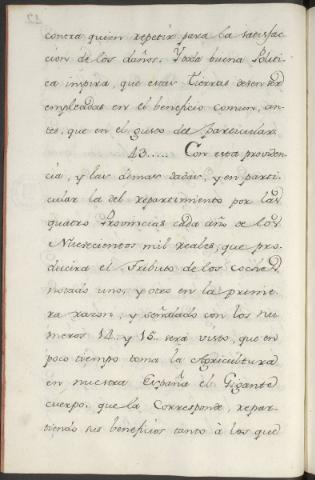 contra quien repetir para la satisfac
cion de los daños. Y toda buena Politi
ca inspira, que estas tierras deben ser
empleadas en el beneficio comun, an
tes, que en el gusto del particular
43..... Con esta providen
cia, y las demas dadas, y en parti
cular la del repartimiento por las
quatro Provincias cada año de los
Nuevecientos mil reales, que pro
ducira el Tributo de los coches,
notado uno, y otro en la prime
ra razon, y señalado con los nu
meros 14, y 15. será visto, que en
poco tiempo toma la Agricultura
en nuestra España el Gigante
cuerpo, que la corresponde, repar
tiendo sus beneficios tanto à los que